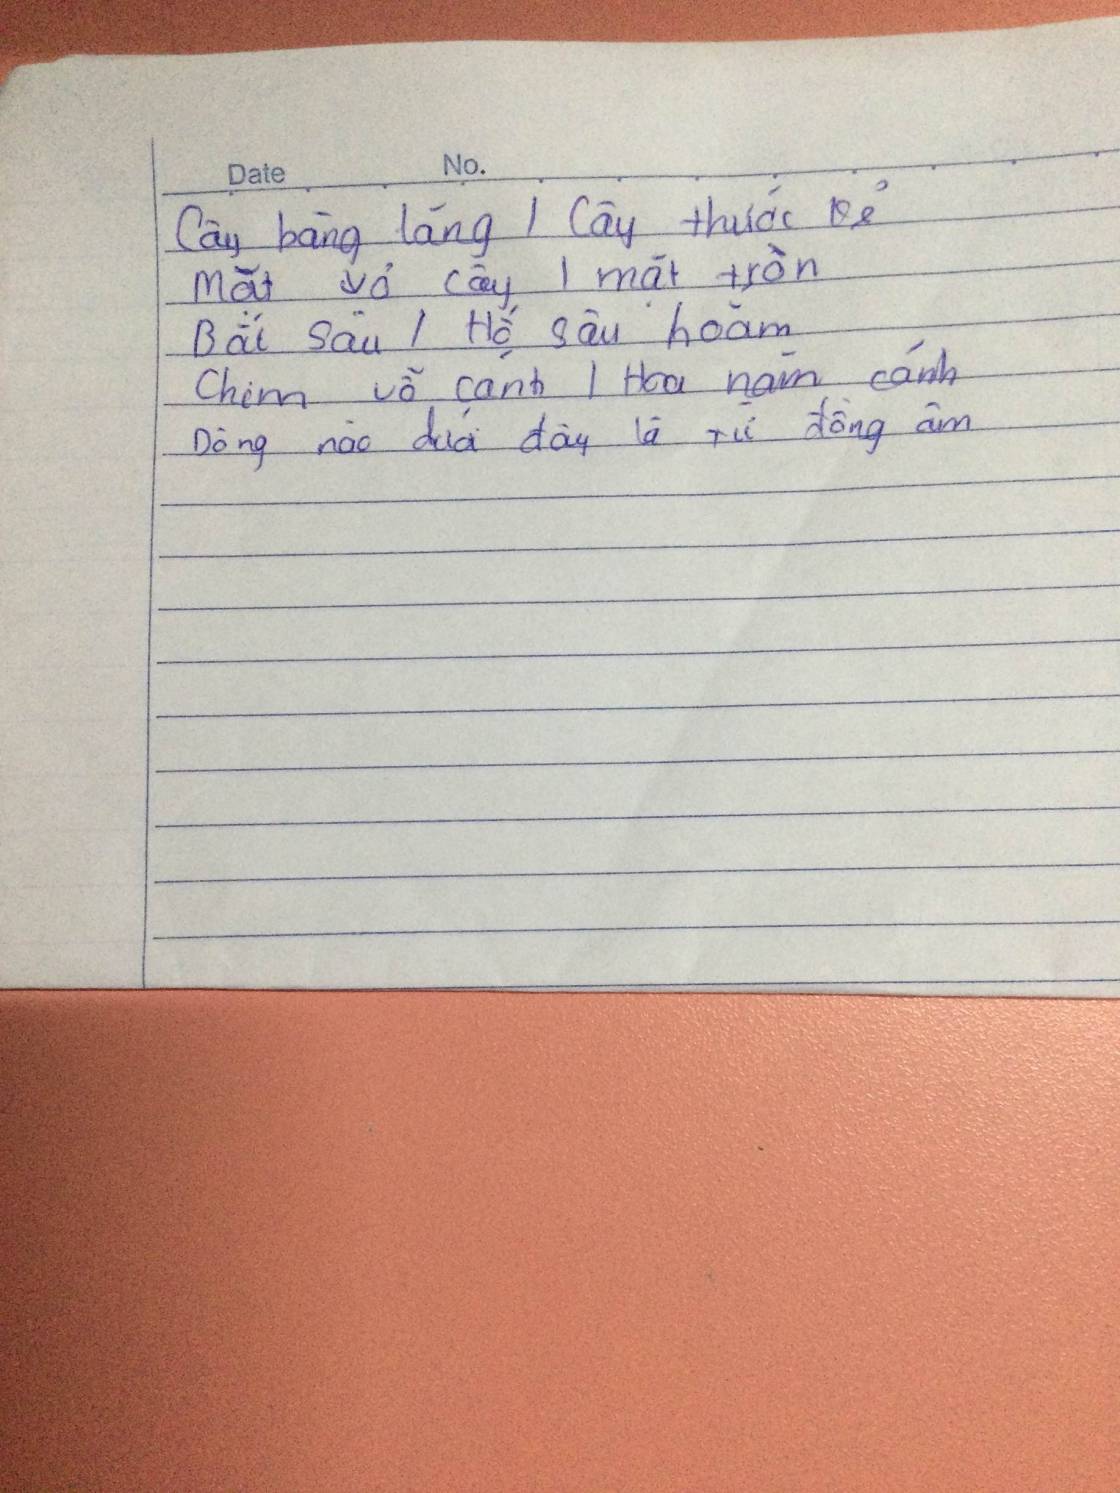 Date No.
Cây bằng lăng / Cây thước kẻ
Mắt vỏ cây / mắt tròn
Bắt sâu / Hố sâu hoăm
Chim vỗ cánh / Hoa năm cánh
Dòng nào dưới đây là từ đồng âm